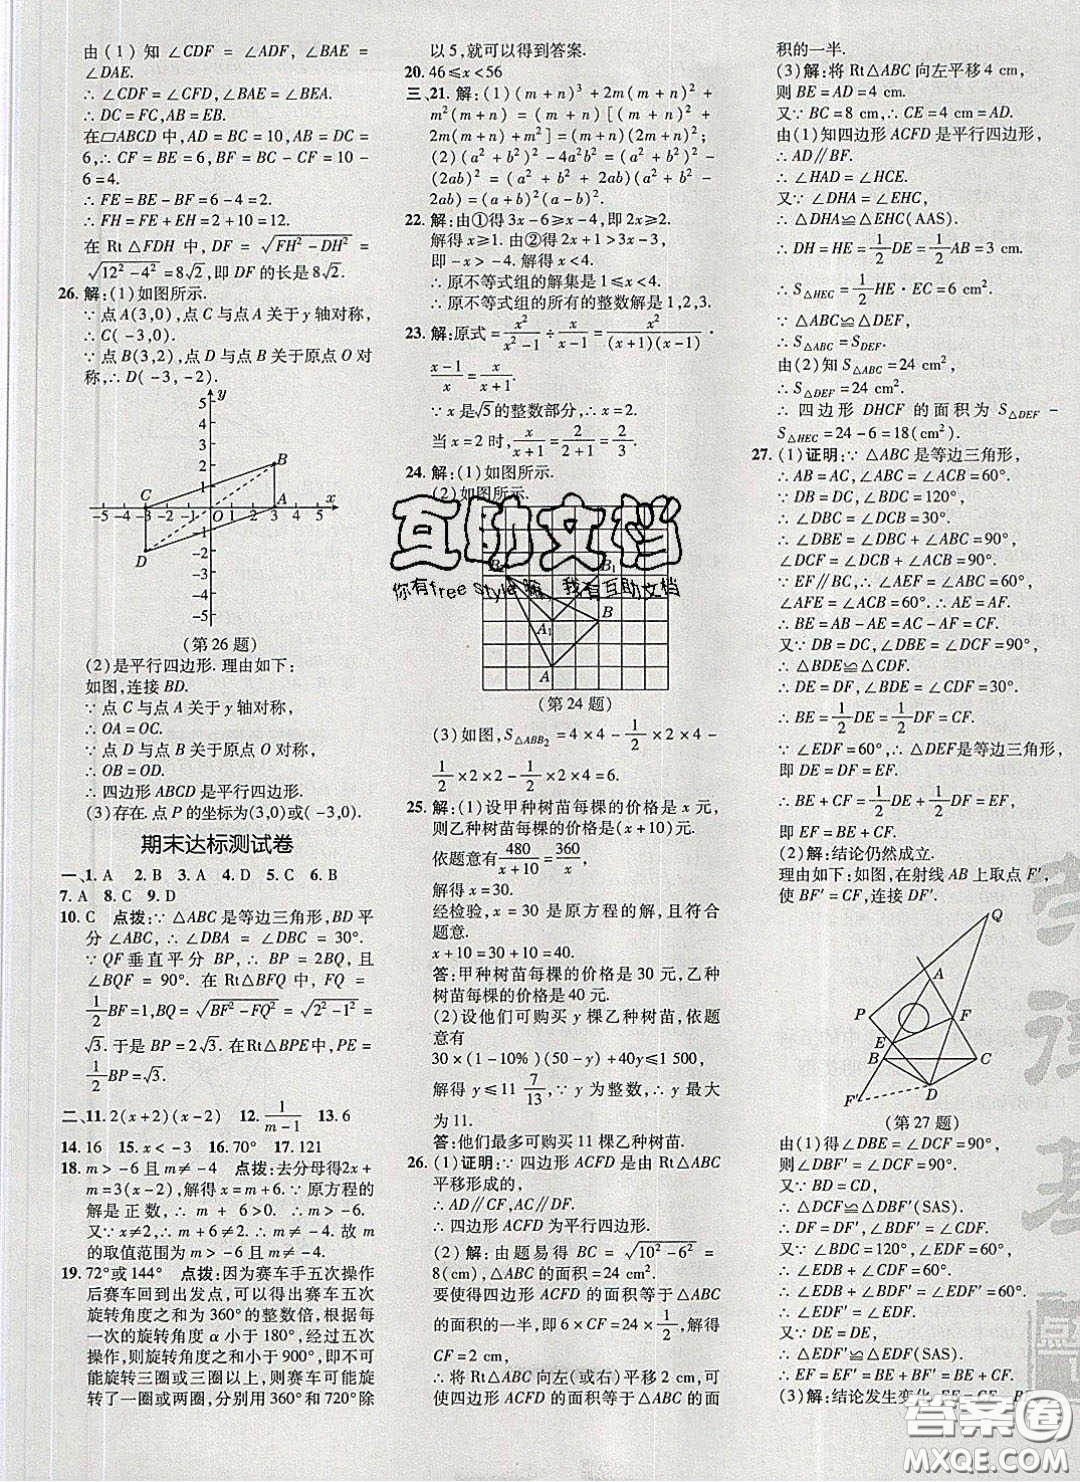 由(1)知 ∠CDF = ∠ADF, ∠BAE =
∠DAE.
∴ ∠CDF = ∠CFD, ∠BAE = ∠BEA.
∴ DC = FC, AB = EB.
在▱ABCD 中, AD = BC = 10, AB = DC =
6, ∴ CF = BE = 6, BF = BC - CF = 10 -
6 = 4.
∴ FE = BE - BF = 6 - 4 = 2.
∴ FH = FE + EH = 2 + 10 = 12.
在 Rt△FDH 中, DF = √(FH² - DH²) =
√(12² - 4²) = 8√2, 即 DF 的长是 8√2.
26. 解:(1)如图所示.
∵ 点 A(3,0), 点 C 与点 A 关于 y 轴对称,
∴ C(-3,0).
∵ 点 B(3,2), 点 D 与点 B 关于原点 O 对
称, ∴ D(-3,-2).
y
5
4
3
2
1
B
C
A
x
-5 -4 -3 -2 -1 O 1 2 3 4 5
-1
D
-2
-3
-4
-5
(第 26 题)
(2)是平行四边形. 理由如下:
如图, 连接 BD.
∵ 点 C 与点 A 关于 y 轴对称,
∴ OA = OC.
∵ 点 D 与点 B 关于原点 O 对称,
∴ OB = OD.
∴ 四边形 ABCD 是平行四边形.
(3)存在. 点 P 的坐标为(3,0)或(-3,0).
期末达标测试卷
一、1. A 2. B 3. A 4. D 5. C 6. B
7. A 8. C 9. D
10. C 点拨: ∵ △ABC 是等边三角形, BD 平
分 ∠ABC, ∴ ∠DBA = ∠DBC = 30°.
∵ QF 垂直平分 BP, ∴ BP = 2BQ, 且
∠BQF = 90°. 在 Rt△BFQ 中, FQ =
1/2 BF = 1, BQ = √(BF² - FQ²) = √(2² - 1²) =
√3. 于是 BP = 2√3. 在 Rt△BPE 中, PE =
1/2 BP = √3.
二、11. 2(x+2)(x-2) 12. 1/(m-1) 13. 6
14. 16 15. x < -3 16. 70° 17. 121
18. m > -6 且 m ≠ -4 点拨: 去分母得2x +
m = 3(x-2), 解得 x = m + 6. ∵ 原方程的
解是正数, ∴ m + 6 > 0. ∴ m > -6.
又∵ x ≠ 2, ∴ m + 6 ≠ 2. ∴ m ≠ -4. 故 m
的取值范围为 m > -6 且 m ≠ -4.
19. 72°或 144° 点拨: 因为赛车手五次操作
后赛车回到出发点, 可以得出赛车五次
旋转角度之和为 360°的整数倍, 根据每
一次的旋转角度 α 小于 180°, 经过五次
操作, 则旋转角度之和小于 900°, 即不可能
旋转了三圈或三圈以上, 则赛车可能
旋转了一圈或两圈, 分别用 360°和 720°除
以 5, 就可以得到答案.
20. 46 ≤ x < 56
三、21. 解:(1)(m+n)³ + 2m(m+n)² +
m²(m+n) = (m+n)[(m+n)² +
2m(m+n) + m²] = (m+n)(2m+n)²;
(2)(a²+b²)² - 4a²b² = (a²+b²)² -
(2ab)² = (a²+b²+2ab)(a²+b²-
2ab) = (a+b)²(a-b)².
22. 解: 由①得 3x - 6 ≥ x - 4, 即 2x ≥ 2.
解得 x ≥ 1. 由②得 2x + 1 > 3x - 3,
即 -x > -4. 解得 x < 4.
∴ 原不等式组的解集是 1 ≤ x < 4.
∴ 原不等式组的所有的整数解是 1, 2, 3.
23. 解: 原式 = x²/(x²-1) ÷ x/(x-1) = x²/((x+1)(x-1)) ·
(x-1)/x = x/(x+1).
∵ x 是√5的整数部分, ∴ x = 2.
当 x = 2 时, x/(x+1) = 2/(2+1) = 2/3.
24. 解:(1)如图所示.
(2)如图所示.
互助文档
你有free style嘛 我有互助文档
B₂
B₁
A₁
B
A
(第 24 题)
(3)如图, S△ABB₂ = 4×4 - 1/2×2×4 -
1/2×2×2 - 1/2×4×4 = 6.
25. 解:(1)设甲种树苗每棵的价格是 x 元,
则乙种树苗每棵的价格是(x+10)元.
依题意有 480/(x+10) = 360/x,
解得 x = 30.
经检验, x = 30 是原方程的解, 且符合
题意.
x + 10 = 30 + 10 = 40.
答: 甲种树苗每棵的价格是 30 元, 乙种
树苗每棵的价格是 40 元.
(2)设他们可购买 y 棵乙种树苗, 依题
意有
30×(1-10%)(50-y)+40y≤1 500,
解得 y ≤ 11 7/13, ∵ y 为整数, ∴ y 最大
为 11.
答: 他们最多可购买 11 棵乙种树苗.
26. (1)证明: ∵ 四边形 ACFD 是由 Rt△ABC
平移形成的,
∴ AD∥CF, AC∥DF.
∴ 四边形 ACFD 为平行四边形.
(2)解: 由题易得 BC = √(10² - 6²) =
8(cm), △ABC 的面积 = 24 cm².
要使得四边形 ACFD 的面积等于 △ABC
的面积的一半, 即 6×CF = 24×1/2, 解得
CF = 2 cm.
∴ 将 Rt△ABC 向左(或右)平移 2 cm, 可
使四边形 ACFD 的面积等于 △ABC 的面
积的一半.
(3)解: 将 Rt△ABC 向右平移 4 cm,
则 BE = AD = 4 cm.
又∵ BC = 8 cm, ∴ CE = 4 cm = AD.
由(1)知四边形 ACFD 是平行四边形,
∴ AD∥BF.
∴ ∠HAD = ∠HCE.
又∵ ∠DHA = ∠EHC,
∴ △DHA≌△EHC(AAS).
∴ DH = HE = 1/2 DE = 1/2 AB = 3 cm.
∴ S△HEC = 1/2 HE·EC = 6 cm².
∵ △ABC≌△DEF,
∴ S△ABC = S△DEF.
由(2)知 S△ABC = 24 cm²,
∴ S△DEF = 24 cm².
∴ 四边形 DHCF 的面积为 S△DEF -
S△HEC = 24 - 6 = 18(cm²).
27. (1)证明: ∵ △ABC 是等边三角形,
∴ AB = AC, ∠ABC = ∠ACB = 60°.
∵ DB = DC, ∠BDC = 120°,
∴ ∠DBC = ∠DCB = 30°.
∴ ∠DBE = ∠DBC + ∠ABC = 90°,
∠DCF = ∠DCB + ∠ACB = 90°.
∵ EF∥BC, ∴ ∠AEF = ∠ABC = 60°,
∠AFE = ∠ACB = 60°. ∴ AE = AF.
∴ BE = AB - AE = AC - AF = CF.
又∵ DB = DC, ∠DBE = ∠DCF = 90°,
∴ △BDE≌△CDF.
∴ DE = DF, ∠BDE = ∠CDF = 30°.
∴ BE = 1/2 DE = 1/2 DF = CF.
∵ ∠EDF = 60°, ∴ △DEF是等边三角形,
即 DE = DF = EF.
∴ BE + CF = 1/2 DE + 1/2 DF = EF,
即 EF = BE + CF.
(2)解: 结论仍然成立.
理由如下: 如图, 在射线 AB 上取点 F′,
使 BF′ = CF, 连接 DF′.
Q
A
P
F
E
B
C
F′
D
(第 27 题)
由(1)得 ∠DBE = ∠DCF = 90°,
则 ∠DBF′ = ∠DCF = 90°.
又∵ BD = CD,
∴ △DCF≌△DBF′(SAS).
∴ DF = DF′, ∠BDF′ = ∠CDF.
又∵ ∠BDC = 120°, ∠EDF = 60°,
∴ ∠EDB + ∠CDF = 60°.
∴ ∠EDB + ∠BDF′ = ∠EDF′ = 60°.
∴ ∠EDF′ = ∠EDF.
又∵ DE = DE,
∴ △EDF′≌△EDF(SAS).
∴ EF = EF′ = BE + BF′ = BE + CF.
(3)解: 结论发生变化. EF = CF - BE.
答案圈
MXQE.COM